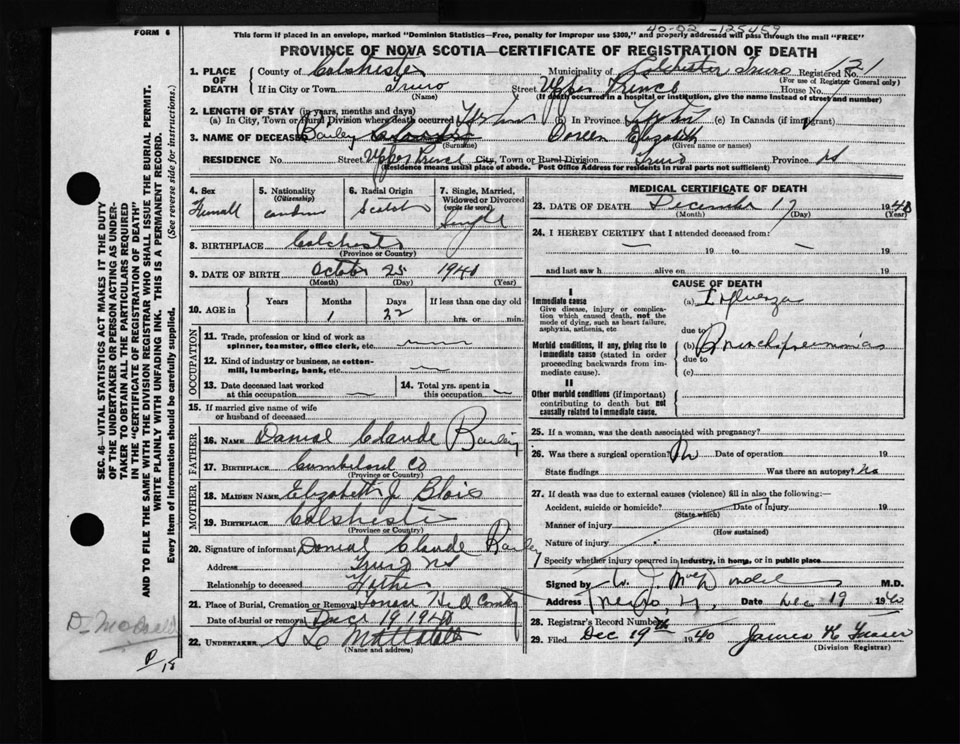 FORM 6
This form if placed in an envelope, marked "Dominion Statistics—Free, penalty for improper use $300," and properly addressed will pass through the mail "FREE"
PROVINCE OF NOVA SCOTIA—CERTIFICATE OF REGISTRATION OF DEATH
1. PLACE OF DEATH County of Colchester Municipality of Colchester Truro Registered No. 121
(For use of Registrar General only)
If in City or Town Truro Street Upper Prince House No.
(Name) (If death occurred in a hospital or institution, give the name instead of street and number)
2. LENGTH OF STAY (in years, months and days)
(a) In City, Town or Rural Division where death occurred (b) In Province (c) In Canada (if immigrant)
3. NAME OF DECEASED Bailey Doreen Elizabeth
(Surname) (Given name or names)
RESIDENCE No. Street Upper Prince City, Town or Rural Division Truro Province NS
(Residence means usual place of abode. Post Office Address for residents in rural parts not sufficient)
4. Sex
5. Nationality (Citizenship)
6. Racial Origin Scotch
7. Single, Married, Widowed or Divorced (write the word) Single
8. BIRTHPLACE Colchester
(Province or Country)
9. DATE OF BIRTH October 25 1940
(Month) (Day) (Year)
10. AGE in Years Months 1 Days 22 If less than one day old hrs. or min.
OCCUPATION
11. Trade, profession or kind of work as spinner, teamster, office clerk, etc.
12. Kind of industry or business, as cotton-mill, lumbering, bank, etc.
13. Date deceased last worked at this occupation
14. Total yrs. spent in this occupation
15. If married give name of wife or husband of deceased
FATHER
16. NAME Danial Claude Bailey
17. BIRTHPLACE Cumberland Co
(Province or Country)
MOTHER
18. MAIDEN NAME Elizabeth J Blois
19. BIRTHPLACE Colchester
(Province or Country)
20. Signature of informant Danial Claude Bailey
Address Truro NS
Relationship to deceased Father
21. Place of Burial, Cremation or Removal
Date of burial or removal Dec 19 1940
22. UNDERTAKER
(Name and address)
MEDICAL CERTIFICATE OF DEATH
23. DATE OF DEATH December 17 1940
(Month) (Day) (Year)
24. I HEREBY CERTIFY that I attended deceased from:
19 to 19
and last saw h alive on 19
CAUSE OF DEATH
I
Immediate cause
Give disease, injury or complication which caused death, not the mode of dying, such as heart failure, asphyxia, asthenia, etc
(a) Influenza
due to
Morbid conditions, if any, giving rise to immediate cause (stated in order proceeding backwards from immediate cause).
(b) Bronchopneumonia
due to
(c)
II
Other morbid conditions (if important) contributing to death but not causally related to immediate cause.
25. If a woman, was the death associated with pregnancy?
26. Was there a surgical operation? No Date of operation 19
State findings Was there an autopsy? No
27. If death was due to external causes (violence) fill in also the following:—
Accident, suicide or homicide? Date of injury 19
(State which)
Manner of injury
(How sustained)
Nature of injury
Specify whether injury occurred in industry, in home, or in public place
Signed by M.D.
Address Truro, N.S. Date Dec 19 1940
28. Registrar's Record Number
29. Filed Dec 19th 1940 James K Fraser
(Division Registrar)
SEC. 46—VITAL STATISTICS ACT MAKES IT THE DUTY
OF THE UNDERTAKER OR PERSON ACTING AS UNDER-
TAKER TO OBTAIN ALL THE PARTICULARS REQUIRED
IN THE "CERTIFICATE OF REGISTRATION OF DEATH"
AND TO FILE THE SAME WITH THE DIVISION REGISTRAR WHO SHALL ISSUE THE BURIAL PERMIT.
WRITE PLAINLY WITH UNFADING INK. THIS IS A PERMANENT RECORD.
Every item of information should be carefully supplied. (See reverse side for instructions.)